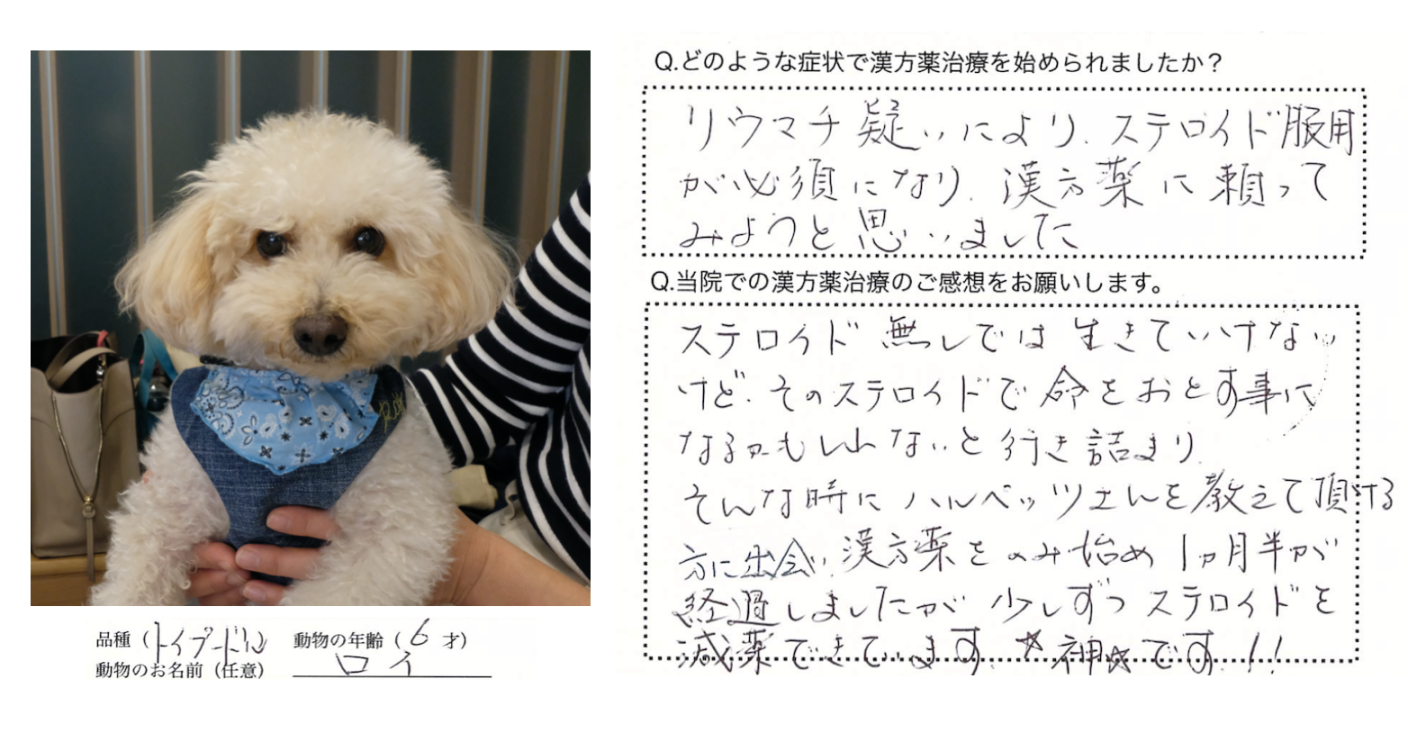 Q.どのような症状で漢方薬治療を始められましたか？
リウマチ疑いにより、ステロイド服用
が必須になり、漢方薬に頼って
みようと思いました
Q.当院での漢方薬治療のご感想をお願いします。
ステロイド無しでは生きていけない
けど、そのステロイドで命をおとす事に
なるかもしれないと行き詰まり、
そんな時にハルペッツさんを教えて頂ける
方に出会い、漢方薬をのみ始め1ヵ月半が
経過しましたが少しずつステロイドを
減薬できています。☆神☆です!!
品種（トイプードル 動物の年齢（6才）
動物のお名前（任意） ロイ